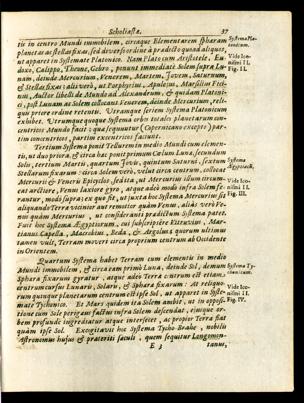 Scholiasta. 37
tis in centro Mundi immobilem, circaque Elementarem sphæram
planetas ac stellas fixas, sed diverso ordine à prædicto quoad aliquos,
ut apparet in Systemate Platonico. Nam Plato cum Aristotele, Eu-
doxo, Calippo, Theone, Gebro, ponunt immediatè Solem supra Lu-
nam, deinde Mercurium, Venerem, Martem, Jovem, Saturnum,
& Stellas fixas: alii verò, ut Porphyrius, Apuleius, Marsilius Fici-
nus, Author libelli de Mundo ad Alexandrum, & quidam Platoni-
ci, post Lunam ac Solem collocant Venerem, deinde Mercurium, reli-
quis priore ordine retentis. Utramque seriem Systema Platonicum
exhibet. Utrumque quoque Systema orbes totales planetarum con-
centricos Mundo facit; quæ sequuntur (Copernicano excepto) par-
tim concentricos, partim excentricos faciunt.
Systema Pla-
tonicum.
Vide Ico-
nismi II.
Fig. II.
Tertium Systema ponit Tellurem in medio Mundi cum elemen-
tis, ut duo priora, & circa hac ponit primum Cælum Lunæ, secundum
Solis, tertium Martis, quartum Jovis, quintum Saturni, sextum
Stellarum fixarum: circa Solem verò, velut circa centrum, collocat
Mercurii & Veneris Epicyclos, sed ita, ut Mercurius illum circum-
eat arctiore, Venus laxiore gyro, atque adeò modò infra Solem fe-
rantur, modò supra; ex quo fit, ut juxta hoc Systema Mercurius sit
aliquando Terræ vicinior aut remotior quàm Venus, aliàs verò Ve-
nus quàm Mercurius, ut consideranti prædictum Systema patet.
Fuit hoc Systema Ægyptiorum, cui subscripsere Vitruvius, Mar-
tianus Capella, Macrobius, Beda, & Argolus; quorum ultimus
tamen vult, Terram moveri circa proprium centrum ab Occidente
in Orientem.
Systema
Ægyptiacum.
Vide Ico-
nismi II.
Fig. III.
Quartum Systema habet Terram cum elementis in medio
Mundi immobilem, & circa eam primò Lunæ, deinde Sol, demum
Sphæra fixarum gyratur, atque adeò Terra centrum est etiam,
centrum cursus Lunaris, Solaris, & Sphæræ fixarum: At reliquo-
rum quinque planetarum centrum est ipse Sol, ut apparet in Syste-
mate Tychonico. Et Mars quidem ita Solem ambit, ut in opposi-
tione cum Sole perigæus factus infra Solem descendat, ejusque or-
bem profundè ingrediatur atque intersecet, ac propior Terræ fiat
quàm ipse Sol. Excogitavit hoc Systema Tycho Brahe, nobilis
Astronomus hujus & præteriti sæculi, quem sequitur Longomon-
Systema Ty-
chonicum.
Vide Ico-
nismi II.
Fig. IV.
E 3 tanus,